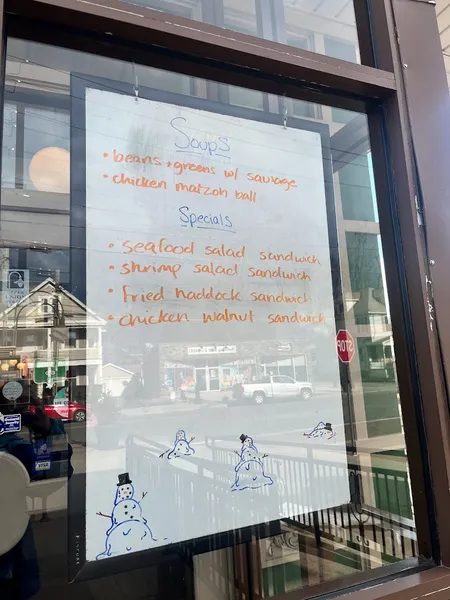 Soups
• beans + greens w/ sausage
• chicken matzoh ball
Specials
• seafood salad sandwich
• shrimp salad sandwich
• fried haddock sandwich
• chicken walnut sandwich
STOP